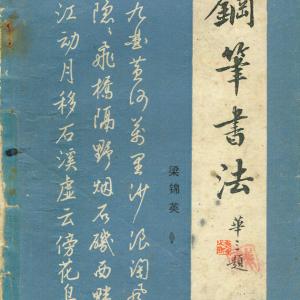 鋼筆書法
題
梁锦英
九曲黄河萬里沙浪淘風
隐隐飛橋隔野烟石磯西畔
江动月移石溪虚云傍花鸟